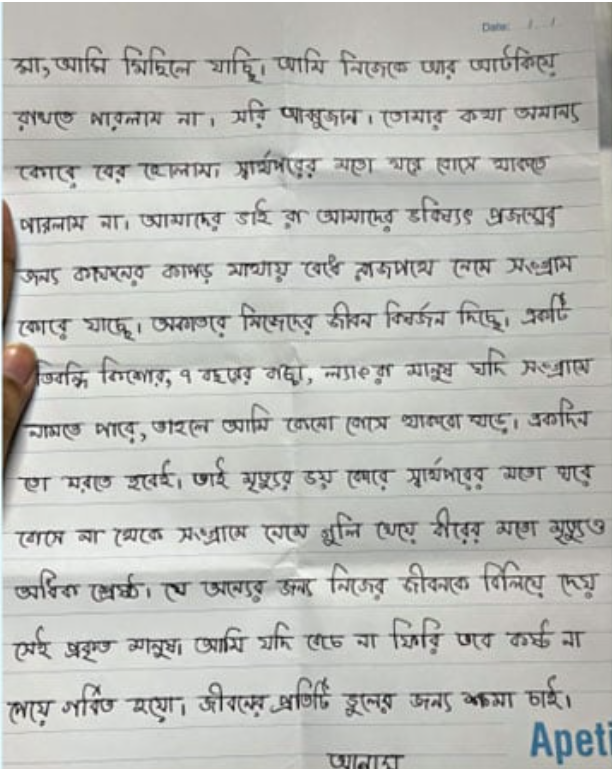 Date: / /
মা, আমি মিছিলে যাচ্ছি। আমি নিজেকে আর আটকিয়ে
রাখতে পারলাম না। সরি আব্বুজান। তোমার কথা অমান্য
কোরে বের হোলাম। স্বার্থপরের মতো ঘরে বোসে থাকতে
পারলাম না। আমাদের ভাই রা আমাদের ভবিষ্যৎ প্রজন্মের
জন্য কাফনের কাপড় মাথায় বেধে রাজপথে নেমে সংগ্রাম
কোরে যাচ্ছে। অকাতরে নিজেদের জীবন বিসর্জন দিচ্ছে। একটি
তিবন্ধি কিশোর, ৭ বছরের বাচ্চা, ল্যাংরা মানুষ যদি সংগ্রামে
নামতে পারে, তাহলে আমি কেনো বোসে থাকবো ঘড়ে। একদিন
তো মরতে হবেই। তাই মৃত্যুর ভয় কোরে স্বার্থপরের মতো ঘরে
বোসে না থেকে সংগ্রামে নেমে গুলি খেয়ে বীরের মতো মৃত্যুও
অধিক শ্রেষ্ঠ। যে অন্যের জন্য নিজের জীবনকে বিলিয়ে দেয়
সেই প্রকৃত মানুষ। আমি যদি বেচে না ফিরি তবে কষ্ট না
পেয়ে গর্বিত হয়ো। জীবনের প্রতিটি ভুলের জন্য ক্ষমা চাই।
আনাস
Apeti